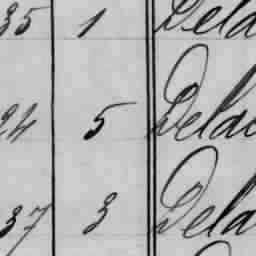 35 1 Dela
24 5 Dela
37 3 Dela